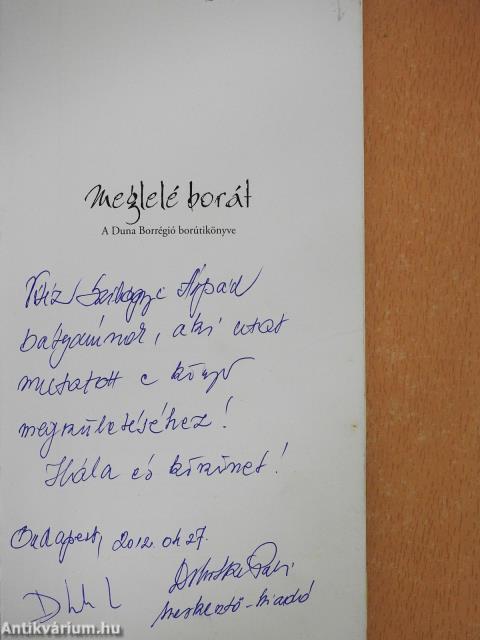 Meglelé borát
A Duna Borrégió borútikönyve
Szilágyi Árpád
bátyámnak, aki utat
mutatott e könyv
megszületéséhez!
Hála és köszönet!
Budapest, 2012. okt 27.
szerkesztő-kiadó
Antikvárium.hu